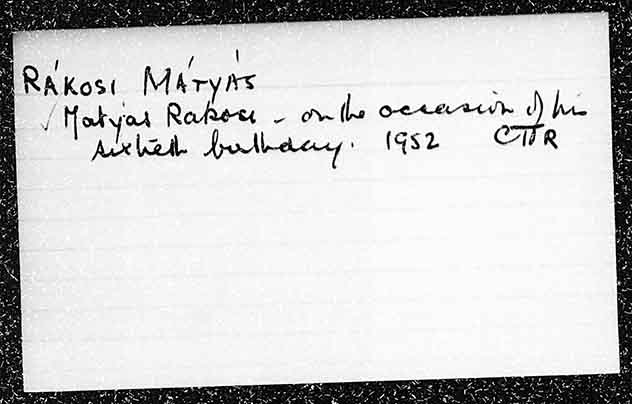 RÁKOSI MÁTYÁS
Matyas Rakosi - on the occasion of his
sixtieth birthday. 1952